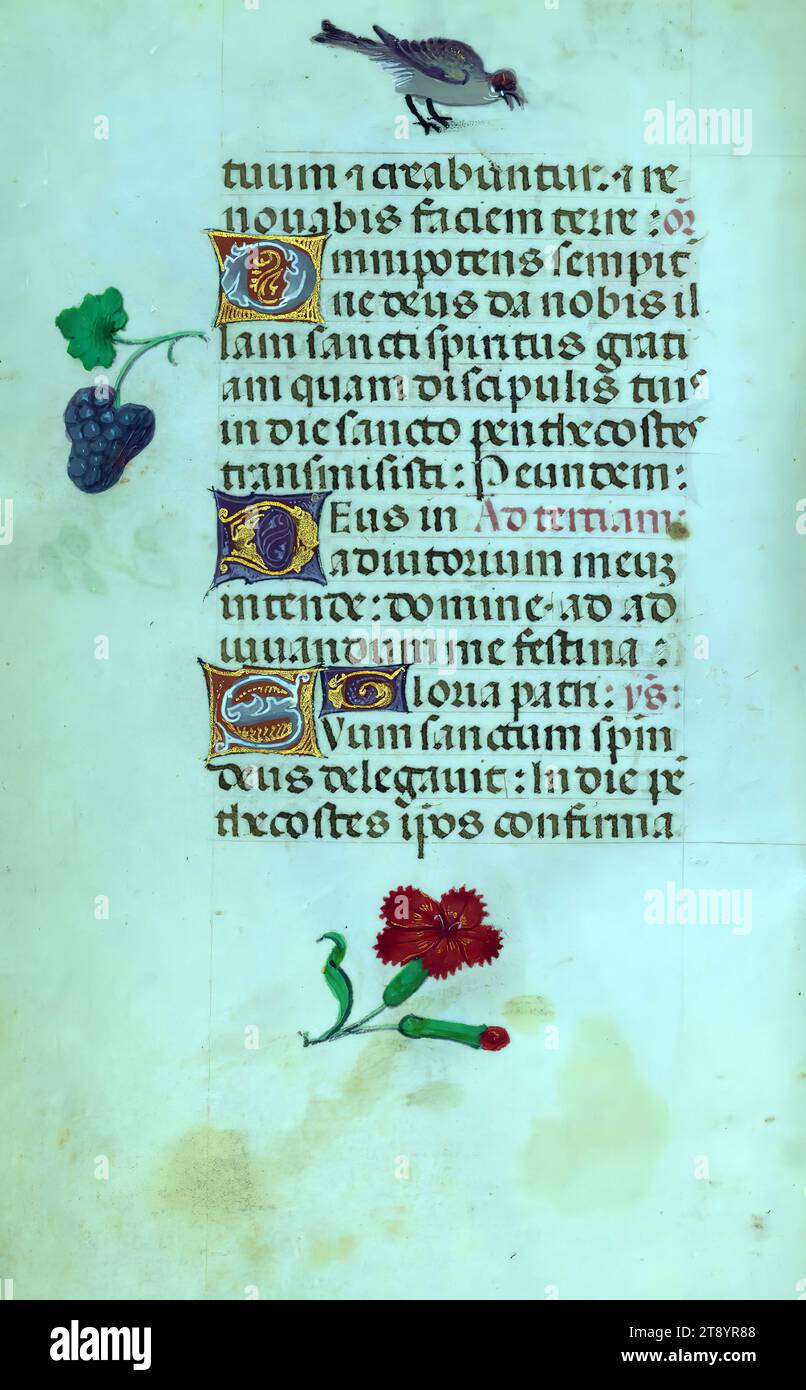 tuum ⁊ creabuntur. ⁊ re
nouabis faciem terre : or̄
Omnipotens sempit̄
ne deus da nobis il
lam sancti spiritus grati
am quam discipulis tuis
in die sancto penthecostes
transmisisti : P eundem :
DEus in Ad tertiam :
adiutorium meuʒ
intende : domine. ad ad
iuuandum me festina :
Gloria patri : ys̄ :
Suum sanctum spiri
deus delegauit : In die pē
thecostes ip̄os confirma
alamy
alamy
Image ID: 2T8YR88
www.alamy.com